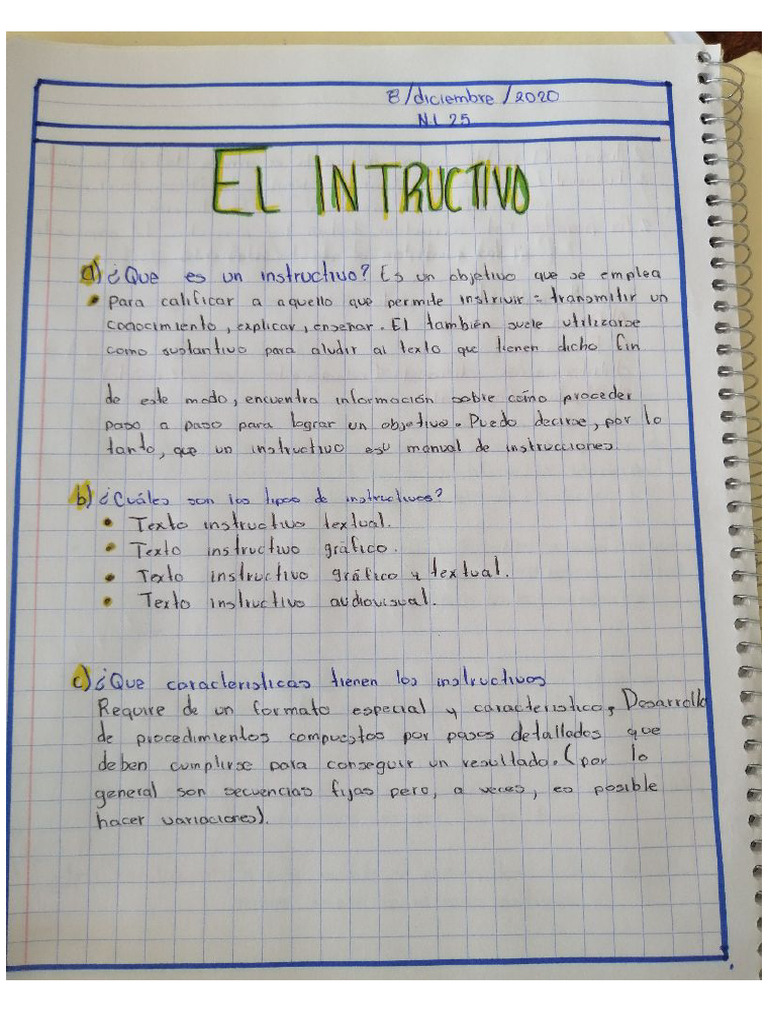 8/diciembre/2020
N.L 25
EL INTRUCTIVO
a) ¿Que es un instructivo? Es un objetivo que se emplea
• para calificar a aquello que permite instrivir = transmitir un
conocimiento, explicar, enseñar. El también suele utilizarse
como sustantivo para aludir al texto que tienen dicho fin
de este modo, encuentra información sobre cómo proceder
paso a paso para lograr un objetivo. Puedo decirse, por lo
tanto, que un instructivo es manual de instrucciones.
b) ¿Cuáles son los tipos de instructivos?
• Texto instructivo textual.
• Texto instructivo gráfico.
• Texto instructivo gráfico y textual.
• Texto instructivo audiovisual.
c) ¿Que caracteristicas tienen los instructivos
Require de un formato especial y caracteristico, Desarrollo
de procedimientos compuestos por pasos detallados que
deben cumplirse para conseguir un resultado. (por lo
general son secuencias fijas pero, a veces, es posible
hacer variaciones).